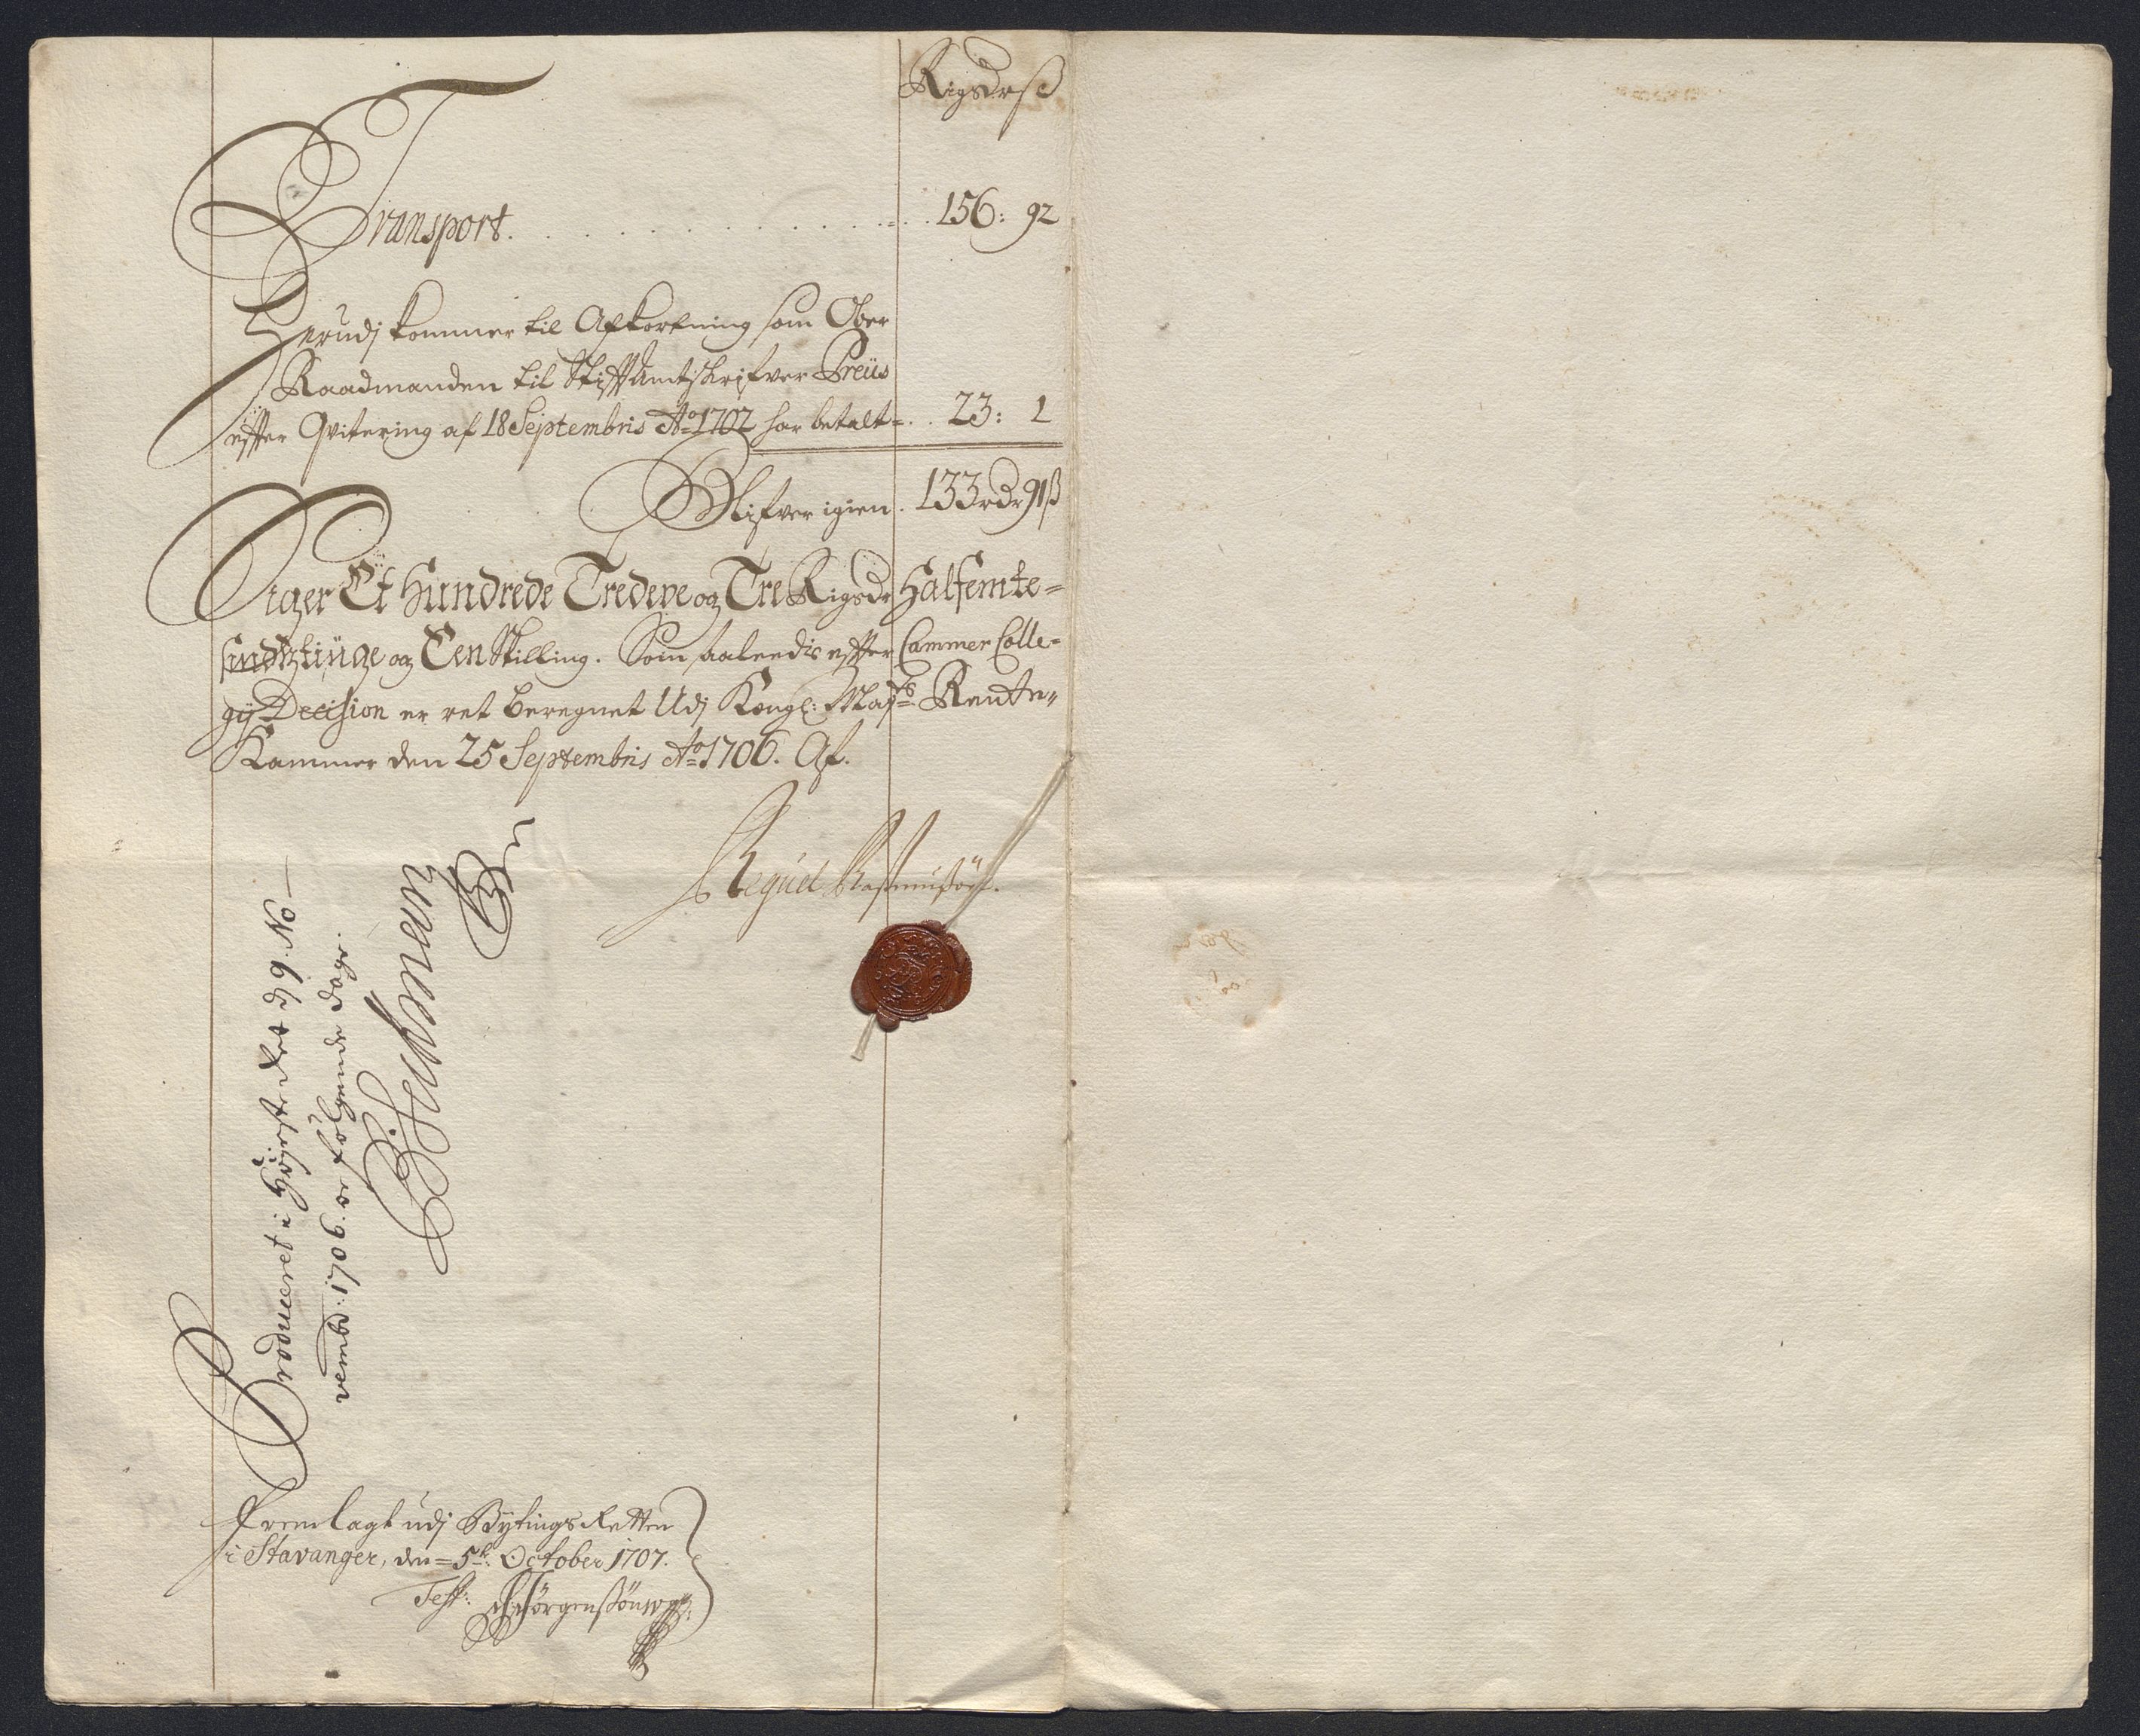 Rigsdr ß
Transport. . . . . . . . . . . . . . 156: 92
Herudj kommer til Afkortning som Ober
Raadmanden til Stifftamtschrifver Preüs
effter Qvitering af 18 Septembris Ao 1702 har betalt . . 23: 1
Blifver igien . 133 rdr 91 ß
Siger Et Hundrede Tredeve og Tre Rigsdr Halfemte=
sindtztiüge og Een Skilling. Som saaledis effter Cammer Colle=
gij Decision er ret beregnet Udj Kongl: Maÿts Rente=
Kammer den 25 Septembris Ao 1706. Af.
Rasmußön.
Produceret i Höjeste Ret d 9. No-
vembr: 1706. oc fölgende dage.
Fremlagt udj Bÿtings Retten
i Stavanger, den = 5te: October 1707.
Test: Jörgenßön